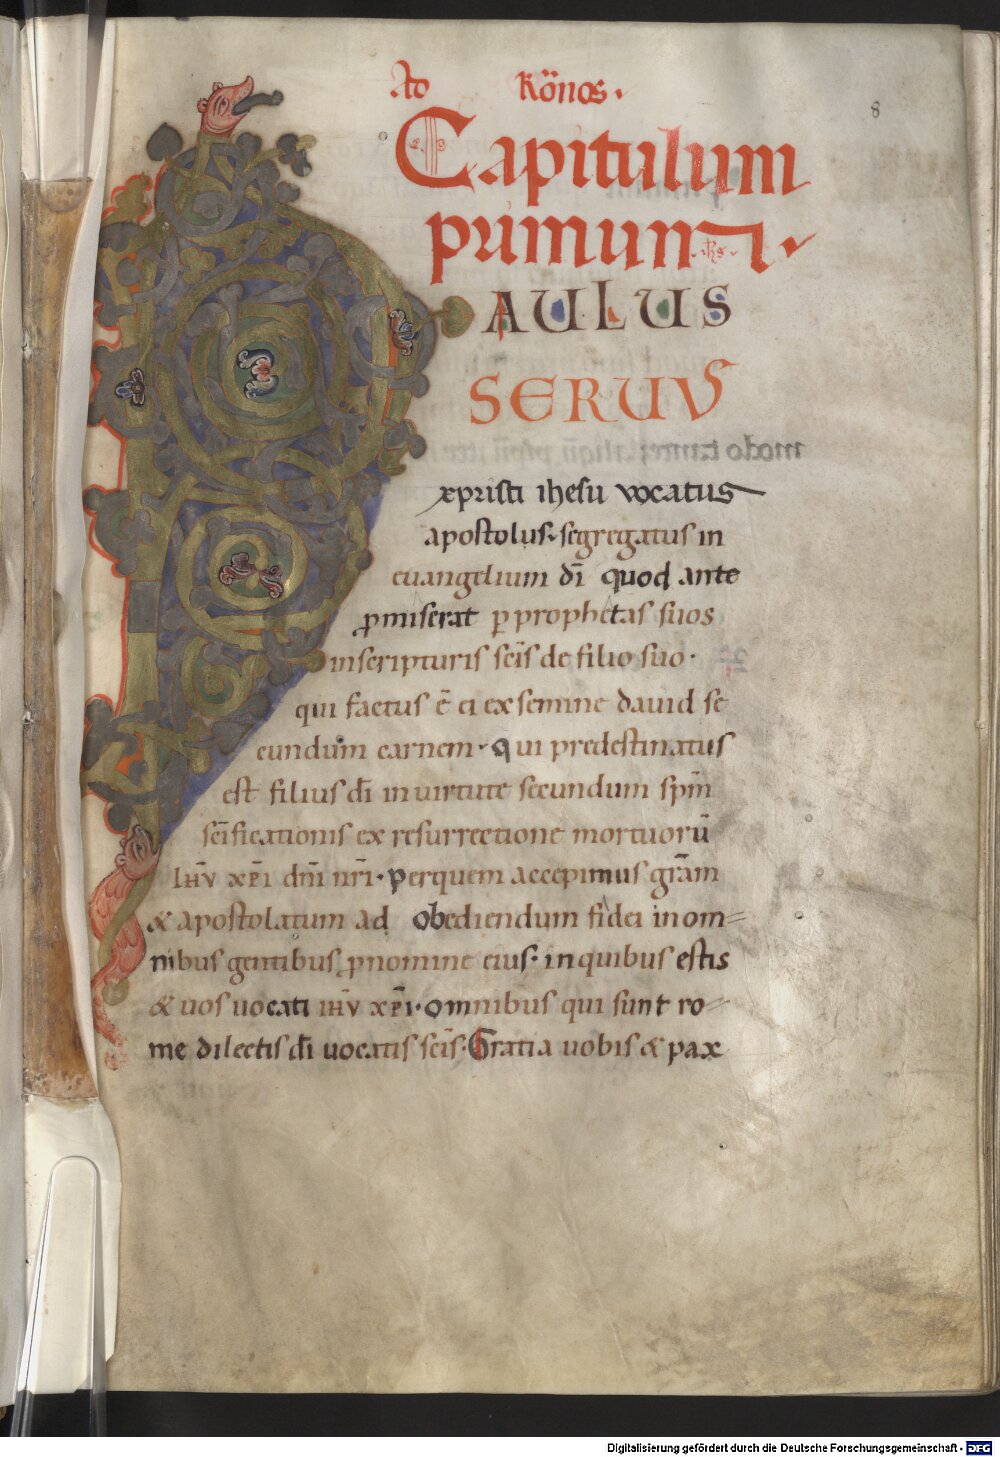 Ad Rönos.
8
Capitulum
primum.
PAULUS
SERUUS
xpristi ihesu vocatus
apostolus. segregatus in
euangelium dī quod ante
promiserat per prophetas suos
in scripturis scīs de filio suo.
qui factus ē ei ex semine dauid se
cundum carnem. Qui predestinatus
est filius dī in uirtute secundum spm̄
scīficationis ex resurrectione mortuorū
Ihū xpī dn̄i nr̄i. Per quem accepimus grām
& apostolatum ad obediendum fidei in om=
nibus gentibus pro nomine eius. in quibus estis
& uos uocati ihū xpī. Omnibus qui sunt ro=
me dilectis dī uocatis scīs. Gratia uobis & pax
Digitalisierung gefördert durch die Deutsche Forschungsgemeinschaft - DFG